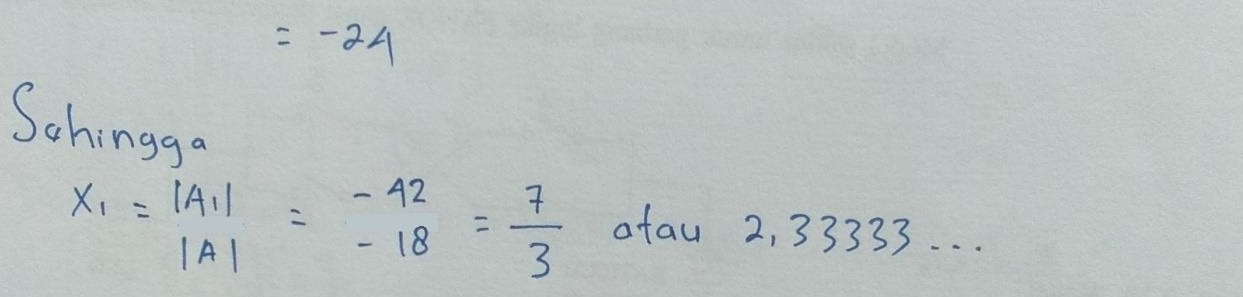 = -24
Sehingga
X₁ = |A₁| / |A| = -42 / -18 = 7/3 atau 2,33333...